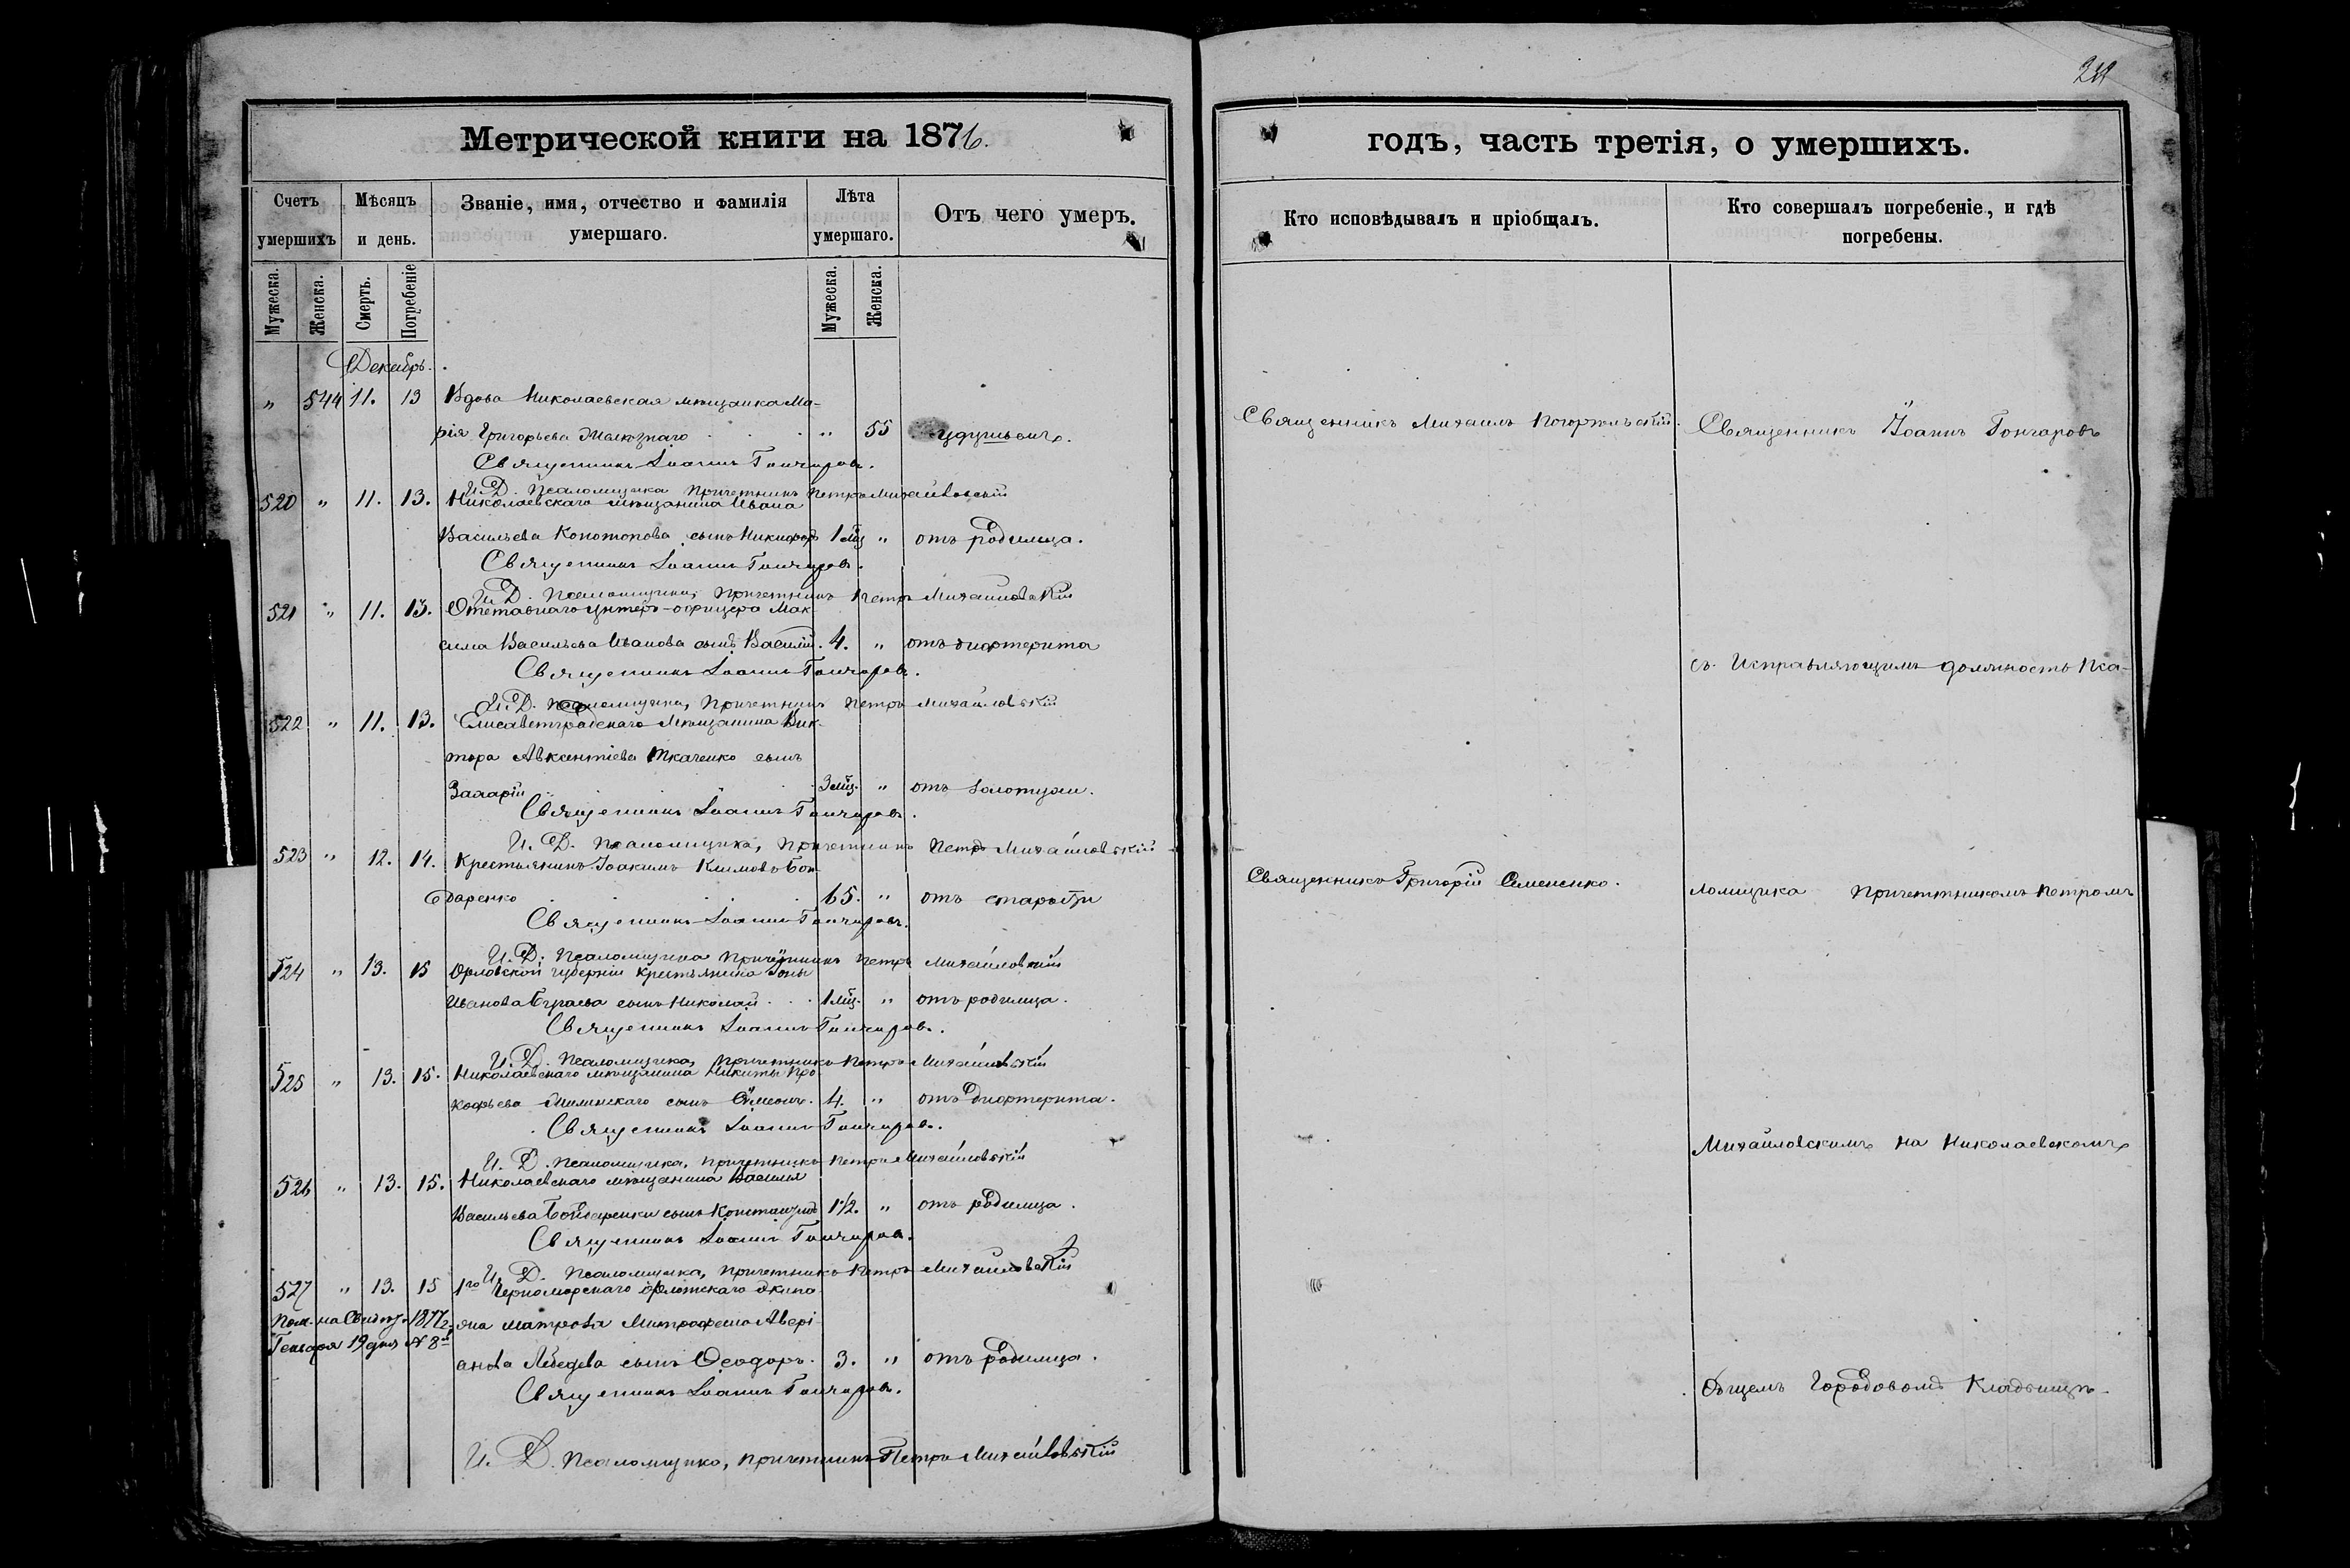 211
Метрической книги на 1876.
годъ, часть третія, о умершихъ.
Счетъ умершихъ
Мѣсяцъ и день.
Званіе, имя, отчество и фамилія умершаго.
Лѣта умершаго.
Отъ чего умеръ.
Кто исповѣдывалъ и пріобщалъ.
Кто совершалъ погребеніе, и гдѣ погребены.
Мужеска. Женска. Смерть. Погребеніе Мужеска. Женска.
Декабрь.
" 544 11. 13 Вдова Николаевская мѣщанка Ма-
рія Григорьева " 55
Священникъ Михаилъ Погоржельскій.
Священникъ Іоаннъ Гончаровъ
Священникъ Іоаннъ Гончаровъ.
И. Д. Псаломщика Причетникъ Петръ Михайловскій
520 " 11. 13. Николаевскаго мѣщанина Ивана
Васильева Конотопова сынъ Никифоръ 1 мц " отъ родимца.
Священникъ Іоаннъ Гончаровъ.
И. Д. Псаломщика, Причетникъ Петръ Михайловскій
521 " 11. 13. Отставнаго унтеръ-офицера Мак
сима Васильева Иванова сынъ Василій. 4. " отъ дифтерита
Священникъ Іоаннъ Гончаровъ.
съ Исправляющимъ должность Пса-
И. Д. Псаломщика, Причетникъ Петръ Михайловскій
522 " 11. 13. Елисаветградскаго Мѣщанина Вик-
тора Авксентіева Ткаченко сынъ
Захарій 3 мц. " отъ золотухи.
Священникъ Іоаннъ Гончаровъ.
И. Д. Псаломщика, Причетникъ Петръ Михайловскій
523 " 12. 14. Крестьянинъ Іоакимъ Климовъ Бон-
даренко 65. " отъ старости
Священникъ Григорій Семененко.
ломщика Причетникомъ Петромъ
Священникъ Іоаннъ Гончаровъ.
И. Д. Псаломщика Причетникъ Петръ Михайловскій
524 " 13. 15 Орловской губерніи крестьянина Іоны
Иванова сынъ Николай 1 мц. " отъ родимца.
Священникъ Іоаннъ Гончаровъ.
И. Д. Псаломщика, Причетникъ Петръ Михайловскій
525 " 13. 15. Николаевскаго мѣщанина Никиты Про
кофьева сынъ Симеонъ. 4. " отъ дифтерита.
Священникъ Іоаннъ Гончаровъ.
Михайловскимъ на Николаевскомъ
И. Д. Псаломщика, Причетникъ Петръ Михайловскій
526 " 13. 15. Николаевскаго мѣщанина Василья
Васильева сынъ 1½. " отъ родимца.
Священникъ Іоаннъ Гончаровъ.
И. Д. Псаломщика, Причетникъ Петръ Михайловскій
527 " 13. 15 1го Черноморскаго флотскаго экипа
1877 г. жа матроса Митрофана Авері-
Генваря 19 дня № 8й
анова Лебедева сынъ Ѳеодоръ. 3. " отъ родимца.
Общемъ Городовомъ Кладбищѣ.
Священникъ Іоаннъ Гончаровъ.
И. Д. Псаломщика, Причетникъ Петръ Михайловскій